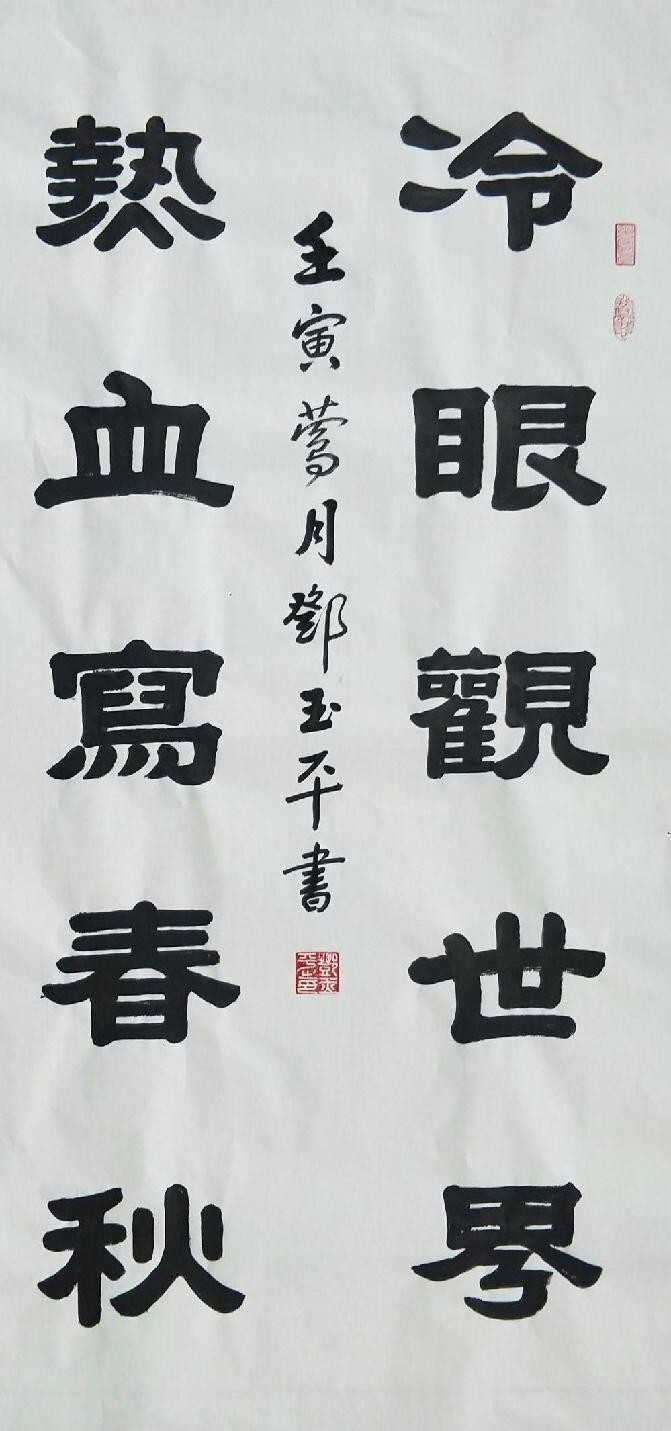 冷眼觀世界
熱血寫春秋
壬寅鶯月鄧玉平書